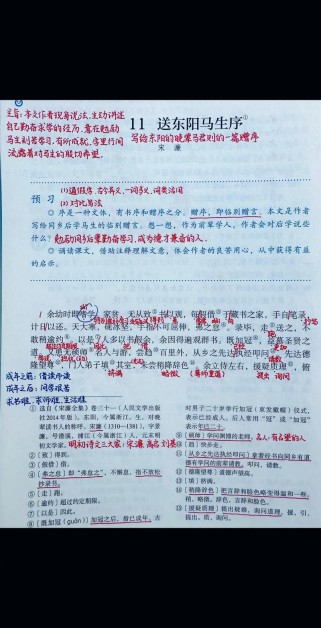 主旨:本文作者现身说法,生动讲述
自己勤奋求学的经历,意在勉励
马生刻苦学习,有所成就,字里行间
流露着对马生的殷切希望。
11 送东阳马生序①
写给东阳的晚辈马君则的一篇赠序
宋濂
预习
(1)通假字、古今异义、一词多义、词类活用
(2)对比写法
○ 序是一种文体,有书序和赠序之分。赠序,即临别赠言。本文是作者
写给同乡后学马生的临别赠言。想一想,作为前辈学人,作者会对后学说些
什么?勉励同乡后辈勤奋学习,成为德才兼备的人。
○ 诵读课文,借助注释理解文意,体会作者的良苦用心,从中获得有益
的启示。
余幼时即嗜学。家贫,无从致②书以观,每假借③于藏书之家,手自笔录,
计日以还。天大寒,砚冰坚,手指不可屈伸,弗之怠④。录毕,走⑤送之,不
敢稍逾约⑥。以是⑦人多以书假余,余因得遍观群书。既加冠⑧,益慕圣贤之
道。又患无硕师⑨名人与游,尝趋⑩百里外,从乡之先达执经叩问⑪。先达德
隆望尊⑫,门人弟子填⑬其室,未尝稍降辞色⑭。余立侍左右,援疑质理⑮,俯
成年之前:借读抄录
成年之后:问学求教
求书难、求师难、生活难
①选自《宋濂全集》卷三十一(人民文学出版
社2014年版)。东阳,今属浙江。生,对晚
辈读书人的称呼。宋濂(1310—1381),字景
濂,号潜溪,浦江(今属浙江)人,元末明
初文学家。明初诗文三大家:宋濂 高启 刘基
②〔致〕得到。
③〔假借〕借。
④〔弗之怠〕即“弗怠之”,不懈怠,指不放松
抄录书。
⑤〔走〕跑。
⑥〔逾约〕超过约定期限。
⑦〔以是〕因此。
⑧〔既加冠(guān)〕加冠之后,指已成年。古
时男子二十岁举行加冠(束发戴帽)仪式,
表示已经成人。后人常用“冠”或“加冠”
表示年已二十。
⑨〔硕师〕学问渊博的老师。名人:有名望的人
⑩〔趋〕快步走。
⑪〔从乡之先达执经叩问〕拿着经书向同乡有道
德有学问的前辈请教。叩问,请教。
⑫〔德隆望尊〕道德声望高。
⑬〔填〕挤满。
⑭〔稍降辞色〕把言辞和脸色略变得温和一些。
稍,略微。辞色,言辞和脸色。
⑮〔援疑质理〕提出疑难,询问道理。援,引、
提出。质,询问。